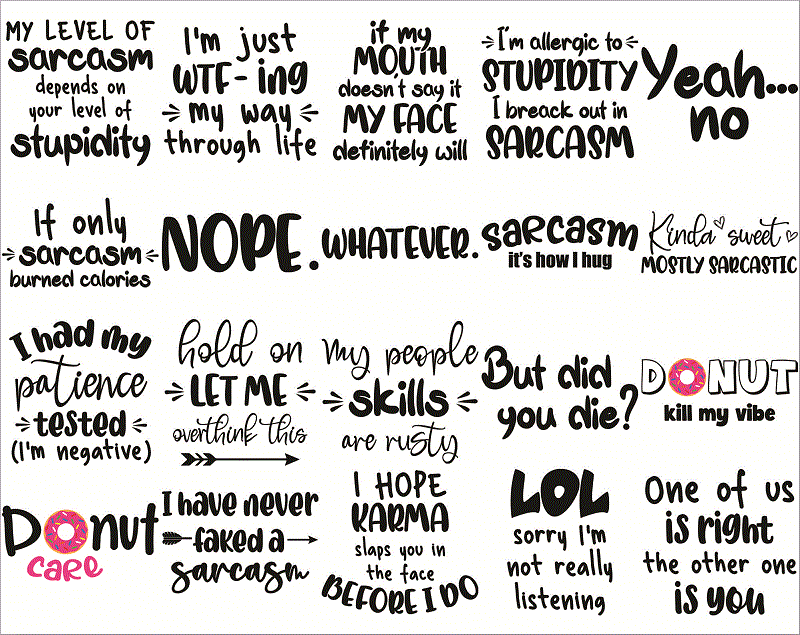 MY LEVEL OF
sarcasm
depends on
your level of
stupidity
I'm just
WTF-ing
my way
through life
if my
MOUTH
doesn't say it
MY FACE
definitely will
I'm allergic to
STUPIDITY
I breack out in
SARCASM
Yeah...
no
If only
sarcasm
burned calories
NOPE.
WHATEVER.
sarcasm
it's how I hug
Kinda sweet
MOSTLY SARCASTIC
I had my
patience
tested
(I'm negative)
hold on
LET ME
overthink this
my people
skills
are rusty
But did
you die?
DONUT
kill my vibe
Donut
care
I have never
faked a
sarcasm
I HOPE
KARMA
slaps you in
the face
BEFORE I DO
LOL
sorry I'm
not really
listening
One of us
is right
the other one
is you